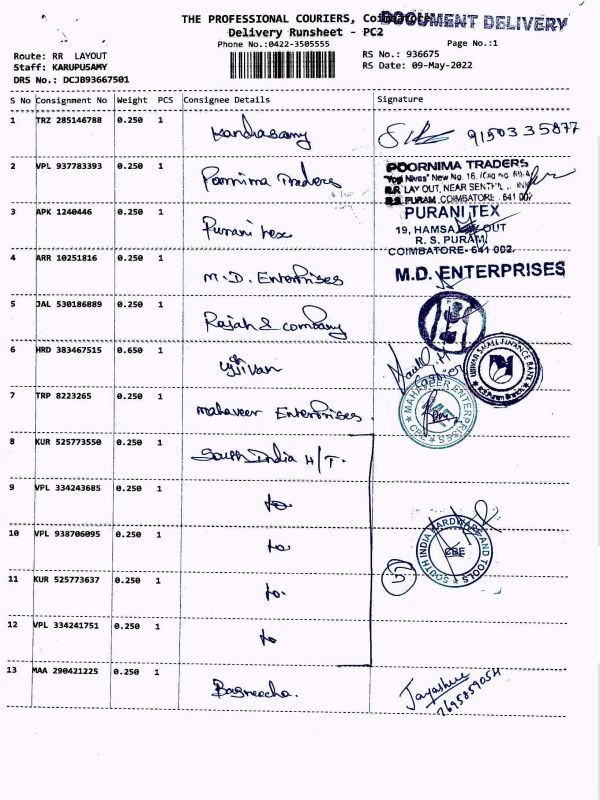 THE PROFESSIONAL COURIERS, Coimbatore
DOCUMENT DELIVERY
Delivery Runsheet - PC2
Phone No.:0422-3505555
Page No.:1
Route: RR LAYOUT
RS No.: 936675
Staff: KARUPUSAMY
RS Date: 09-May-2022
DRS No.: DCJB93667501
S No Consignment No Weight PCS Consignee Details Signature
1 TRZ 285146788 0.250 1 Kandhasamy 9150335877
2 VPL 937783393 0.250 1 Poornima Traders
POORNIMA TRADERS
"Yogi Nivas" New No. 16,
R.R. LAY OUT, NEAR
R.S. PURAM, COIMBATORE. 641 002
3 APK 1240446 0.250 1 Purani tex
PURANI TEX
19, HAMSA LAY OUT
R. S. PURAM,
COIMBATORE- 641 002.
4 ARR 10251816 0.250 1 M.D. Enterprises
M.D. ENTERPRISES
5 JAL 530186889 0.250 1 Rajah & company
6 HRD 383467515 0.650 1 ujjivan
Cashier
UJJIVAN SMALL FINANCE BANK
R.S.Puram Branch
7 TRP 8223265 0.250 1 Mahaveer Enterprises.
MAHAVEER ENTERPRISES
CBE
8 KUR 525773550 0.250 1 South India H/T.
9 VPL 334243685 0.250 1 to
10 VPL 938706095 0.250 1 to
SOUTH INDIA HARDWARE AND TOOLS
CBE
11 KUR 525773637 0.250 1 to.
5
12 VPL 334241751 0.250 1 to
13 MAA 290421225 0.250 1
Jayashree
7695859054